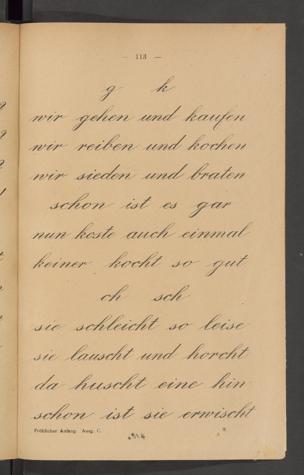 — 113 —
g k
wir gehen und kaufen
wir reiben und kochen
wir sieden und braten
schon ist es gar
nun koste auch einmal
keiner kocht so gut
ch sch
sie schleicht so leise
sie lauscht und horcht
da huscht eine hin
schon ist sie erwischt
Fröhlicher Anfang. Ausg. C. 8